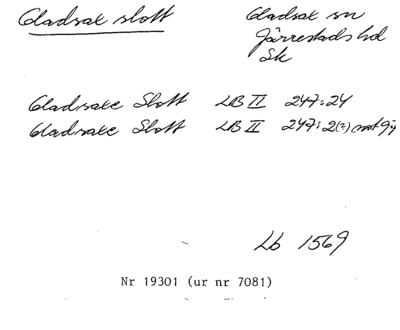 Gladsax slott
Gladsax sn
Järrestads hd
Sk
Gladsaxe Slott LB II 247:24
Gladsaxe Slott LB II 247:2(?) mot 94
Lb 1569
Nr 19301 (ur nr 7081)